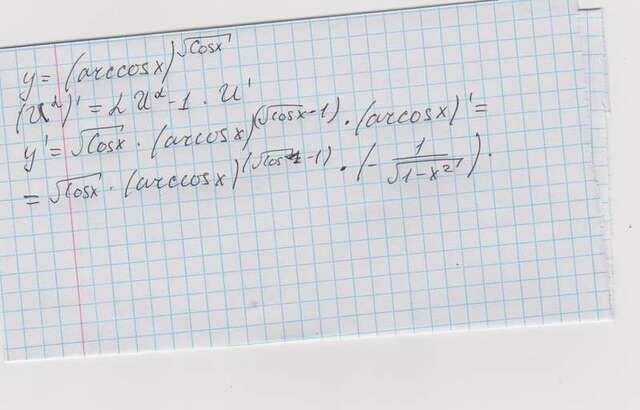 y = (arccosx)^√cosx
(U^α)' = α U^α-1 · U'
y' = √cosx · (arccosx)^(√cosx-1) · (arcosx)' =
= √cosx · (arccosx)^(√cosx-1) · (- 1/√1-x²) .